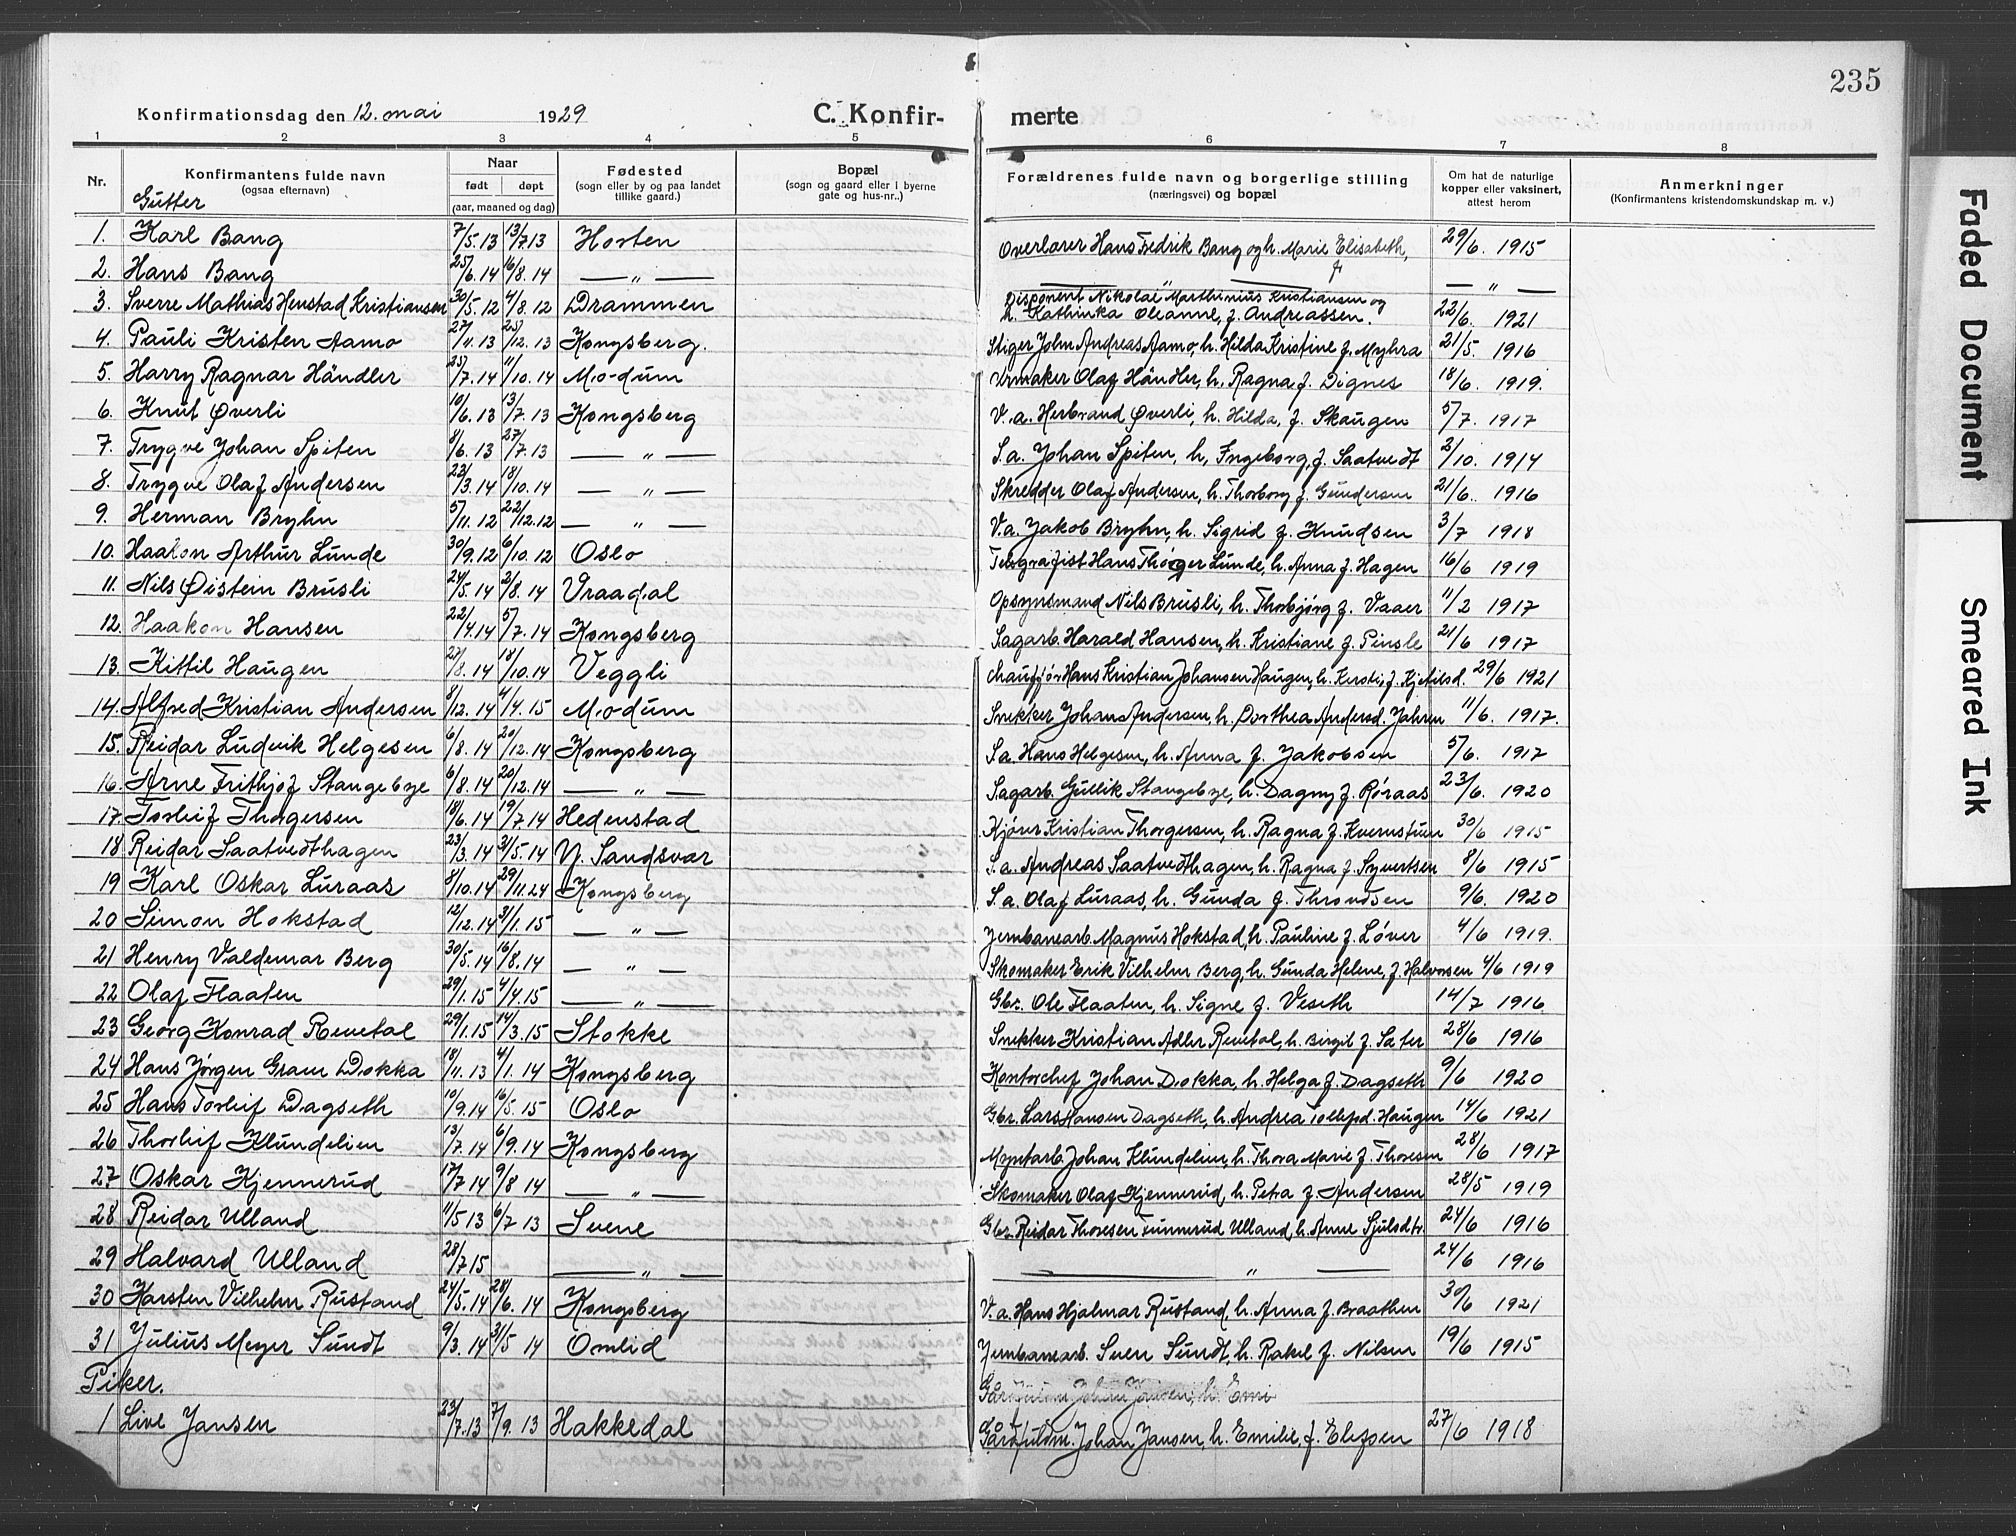 235
Konfirmationsdag den 12. mai 1929 C. Konfir- merte
1 2 3 4 5 6 7 8
Nr. Konfirmantens fulde navn (ogsaa efternavn) Naar født døpt (aar, maaned og dag) Fødested (sogn eller by og paa landet tillike gaard.) Bopæl (sogn og gaard eller i byerne gate og hus-nr..) Forældrenes fulde navn og borgerlige stilling (næringsvei) og bopæl Om hat de naturlige kopper eller vaksinert, attest herom Anmerkninger (Konfirmantens kristendomskundskap m. v.)
Gutter
1. Karl Bang 7/5.13 13/7.13 Horten Overlærer Hans Fredrik Bang og h. Marie Elisabeth, f. 29/6. 1915
2. Hans Bang 25/6.14 16/8.14 — " — — " — — " —
3. Sverre Mathias Henstad Kristiansen 30/5.12 4/8.12 Drammen Disponent Nikolai Marthinius Kristiansen og h. Kathinka Oleanne, f. Andreassen. 22/6. 1921
4. Pauli Kristen Aamo 27/11.13 25/12.13 Kongsberg. Stiger John Andreas Aamo, h. Hilda Kristine f. Myhra 21/5. 1916
5. Harry Ragnar Händler 25/7.14 11/10.14 Modum Urmaker Olaf Händler, h. Ragna f. Dignes 18/6. 1919.
6. Knut Øverli 10/6.13 13/7.13 Kongsberg V.a. Herbrand Øverli, h. Hilda, f. Skaugen 5/7. 1917
7. Trygve Johan Spiten 8/6.13 27/7.13 — " — S.a. Johan Spiten, h. Ingeborg, f. Saatvedt 2/10. 1914
8. Trygve Olaf Andersen 23/3.14 18/10.14 — " — Skredder Olaf Andersen, h. Thorborg f. Gundersen 21/6. 1916
9. Herman Bryhn 5/11.12 22/12.12 — " — V.a. Jakob Bryhn, h. Sigrid f. Knudsen 3/7 1918
10. Haakon Arthur Lunde 30/9.12 6/10.12 Oslo Telegrafist Hans Thorger Lunde, h. Anna f. Hagen 16/6 1919
11. Nils Øistein Brusli 24/5.14 2/8.14 Vraadal Opsynsmand Nils Brusli, h. Thorbjørg f. Vaaer 11/2 1917
12. Haakon Hansen 22/4.14 5/7.14 Kongsberg Sagarb. Harald Hansen, h. Kristiane f. Pinsle 21/6 1917
13. Kittil Haugen 27/8.14 18/10.14 Veggli chauffør Hans Kristian Johansen Haugen, h. Kersti, f. Kjetilsd. 29/6 1921
14. Alfred Kristian Andersen 8/12.14 4/4.15 Modum Snekker Johan Andersen, h. Dorthea Andersd. Jahren 11/6. 1917.
15. Reidar Ludvik Helgesen 6/8.14 20/12.14 Kongsberg S.a. Hans Helgesen, h. Anna f. Jakobsen 5/6. 1917
16. Arne Frithjof Stangebye 6/8.14 20/12.14 — " — Sagarb. Gullik Stangebye, h. Dagny f. Røraas 23/6. 1920
17. Torleif Thorgersen 18/6.14 19/7.14 Hedenstad Kjører Kristian Thorgersen, h. Ragna f. Kvernstuen 30/6 1915
18 Reidar Saatvedthagen 23/3.14 31/5.14 Y. Sandsvær S.a. Andreas Saatvedthagen, h. Ragna f. Syvertsen 8/6 1915
19 Karl Oskar Luraas 8/10.14 29/11.24 Kongsberg S.a. Olaf Luraas, h. Gunda f. Throndsen 9/6. 1920
20 Simon Hokstad 12/12.14 3/1.15 — " — Jernbanearb. Magnus Hokstad, h. Pauline f. Løver 4/6 1919.
21 Henry Valdemar Berg 30/5.14 16/8.14 — " — Skomaker Erik Vilhelm Berg, h. Gunda Helene, f. Halvorsen 4/6 1919
22 Olaf Flaaten 29/1.15 4/4.15 — " — Gbr. Ole Flaaten, h. Signe f. Veseth 14/7 1916
23 Georg Konrad Revetal 29/1.15 14/3.15 Stokke Snekker Kristian Adler Revetal, h. Birgit f. Sater 28/6 1916
24 Hans Jørgen Gram Dokka 18/11.13 4/1.14 Kongsberg Kontorchef Johan Dokka, h. Helga f. Dagseth 9/6 1920
25 Hans Torleif Dagseth 10/9.14 16/5.15 Oslo Gbr. Lars Hansen Dagseth, h. Andrea Tollefsd. Haugen 14/6 1921
26 Thorleif Klundelien 13/7.14 6/9.14 Kongsberg Myntarb. Johan Klundelien, h. Thora Marie f. Thoresen 28/6 1917
27 Oskar Kjennerud 17/7 14 9/8 14 — " — Skomaker Olaf Kjennerud, h. Petra f. Andersen 28/5 1919
28 Reidar Ulland 11/5 13 6/7 13 Svene Gbr. Reidar Thoresen Tunnerud Ulland, h. Anne Sjulsdtr. 24/6 1916
29 Halvard Ulland 28/7 15 — " — — " — 24/6 1916
30 Karsten Vilhelm Rustand 24/5.14 28/6.14 Kongsberg V.a. Hans Hjalmar Rustand, h. Anna f. Braathen 30/6 1921
31 Julius Meyer Sundt 9/3.14 31/5 14 Omlid Jernbanearb. Sven Sundt, h. Rakel f. Nilsen 19/6 1915
Piker. Johan Jansen, h. Emi
1 Live Jansen 23/7.13 7/9.13 Hakkedal Gårdfuldm. Johan Jansen, h. Emilie, f. Elefsen 27/6 1918
Faded Document
Smeared Ink